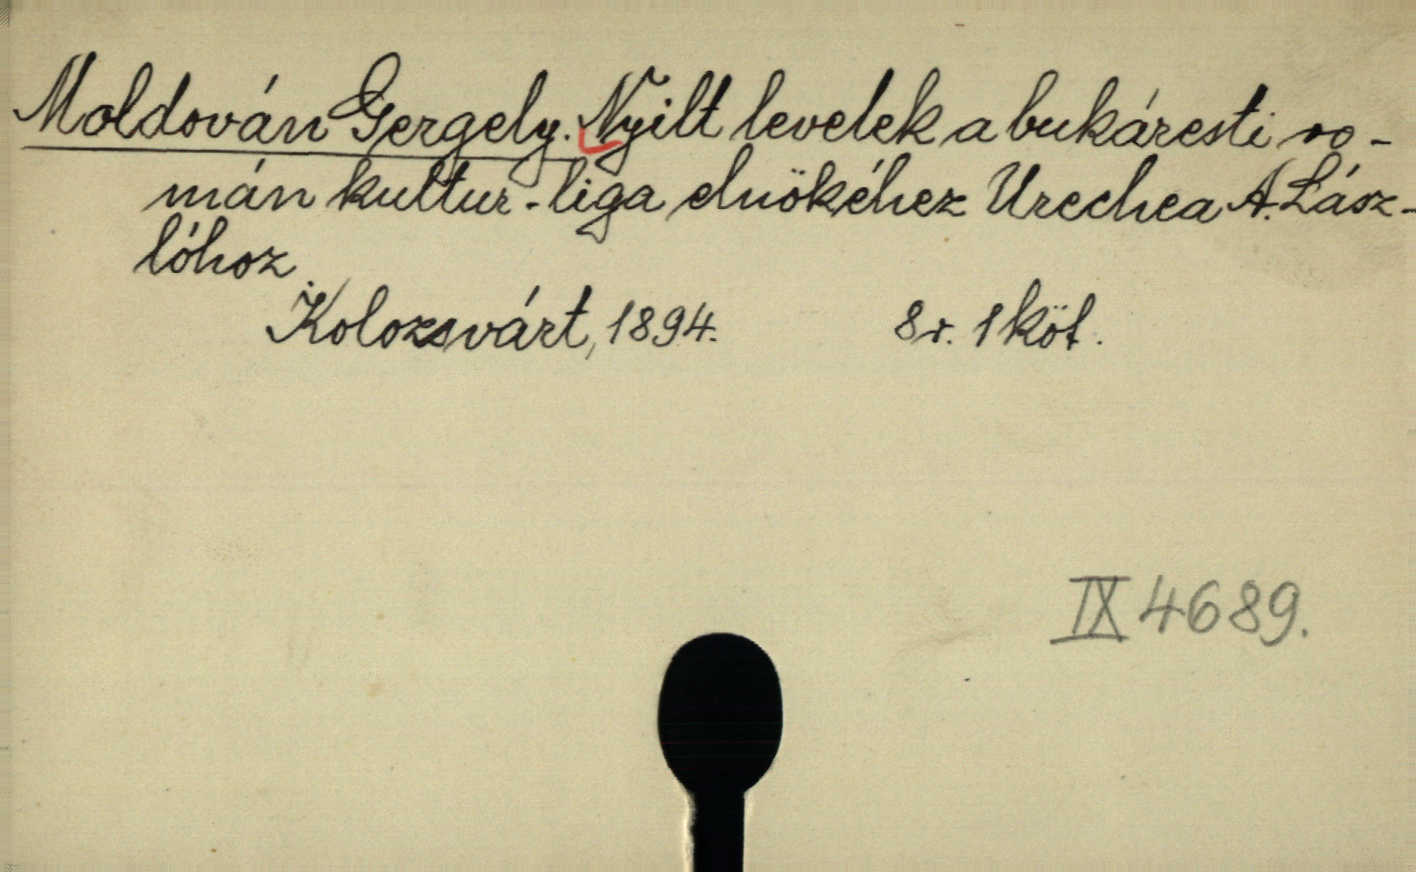 Moldován Gergely. Nyilt levelek a bukáresti ro-
mán kultur-liga elnökéhez Urechea A. Lász-
lóhoz
Kolozsvárt, 1894. 8r. 1 köt.
IX 4689.